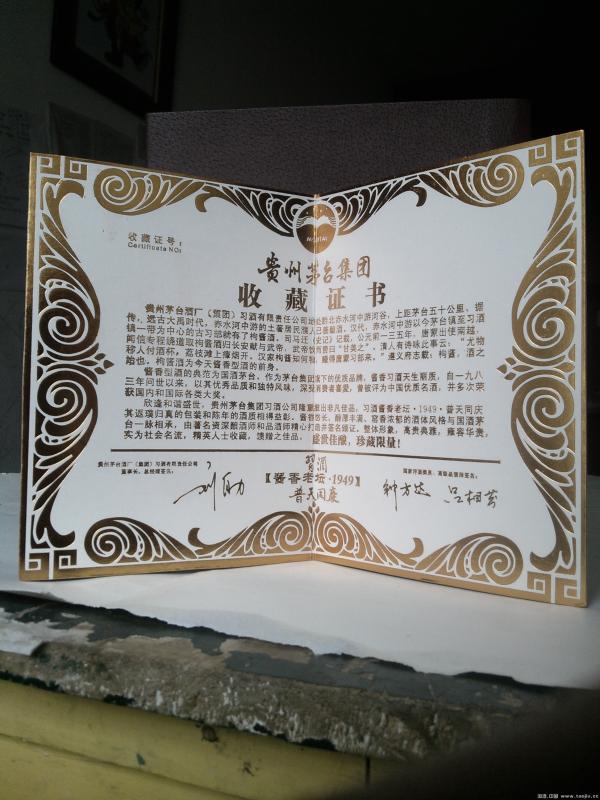 收藏证号：
Certificate NO:
MOUTAI
贵州茅台集团
收藏证书
贵州茅台酒厂（集团）习酒有限责任公司地处黔北赤水河中游河谷，上距茅台五十公里。据
传，远古大禹时代，赤水河中游的土著居民濮人已善酿酒。汉代，赤水河中游以今茅台镇至习酒
镇一带为中心的古习部就有了枸酱酒。司马迁《史记》记载，公元前一三五年，唐蒙出使南越，
闻信专程绕道取枸酱酒归长安献与武帝，武帝饮而赞曰“甘美之”。清人有诗咏此事云：“尤物
移人付酒杯，荔枝滩上瘴烟开。汉家枸酱知何物，赚得唐蒙习部来。”遵义府志载：枸酱，酒之
始也。枸酱酒为今天酱香型酒的前身。
酱香型酒的典范为国酒茅台。作为茅台集团旗下的优质品牌，酱香习酒天生丽质，自一九八
三年问世以来，以其优秀品质和独特风味，深受消费者喜爱，曾被评为中国优质名酒，并多次荣
获国内和国际各类大奖。
欣逢和谐盛世，贵州茅台集团习酒公司隆重推出非凡佳品。习酒酱香老坛·1949·普天同庆
其返璞归真的包装和陈年的酒质相得益彰。酱香悠长、醇厚丰满、窖香浓郁的酒体风格与国酒茅
台一脉相承，由著名资深酿酒师和品酒师精心打造并签名颁证。整体形象，高贵典雅，雍容华贵，
实为社会名流，精英人士收藏，馈赠之佳品。盛世佳酿，珍藏限量！
贵州茅台酒厂（集团）习酒有限责任公司
董事长、总经理签名：
习酒
【酱香老坛·1949】
普天同庆
国家评酒委员、高级品酒师签名：
钟方达 吕相芬
www.taojiu.cc